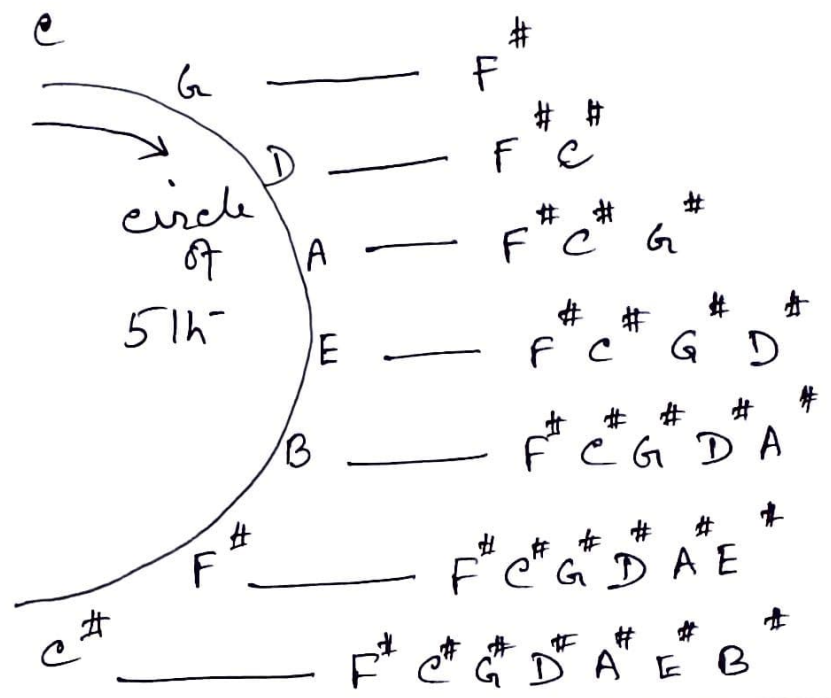 C
G —— F#
D —— F# C#
A —— F# C# G#
circle
of
5th
E —— F# C# G# D#
B —— F# C# G# D# A#
F# —— F# C# G# D# A# E#
C# —— F# C# G# D# A# E# B#